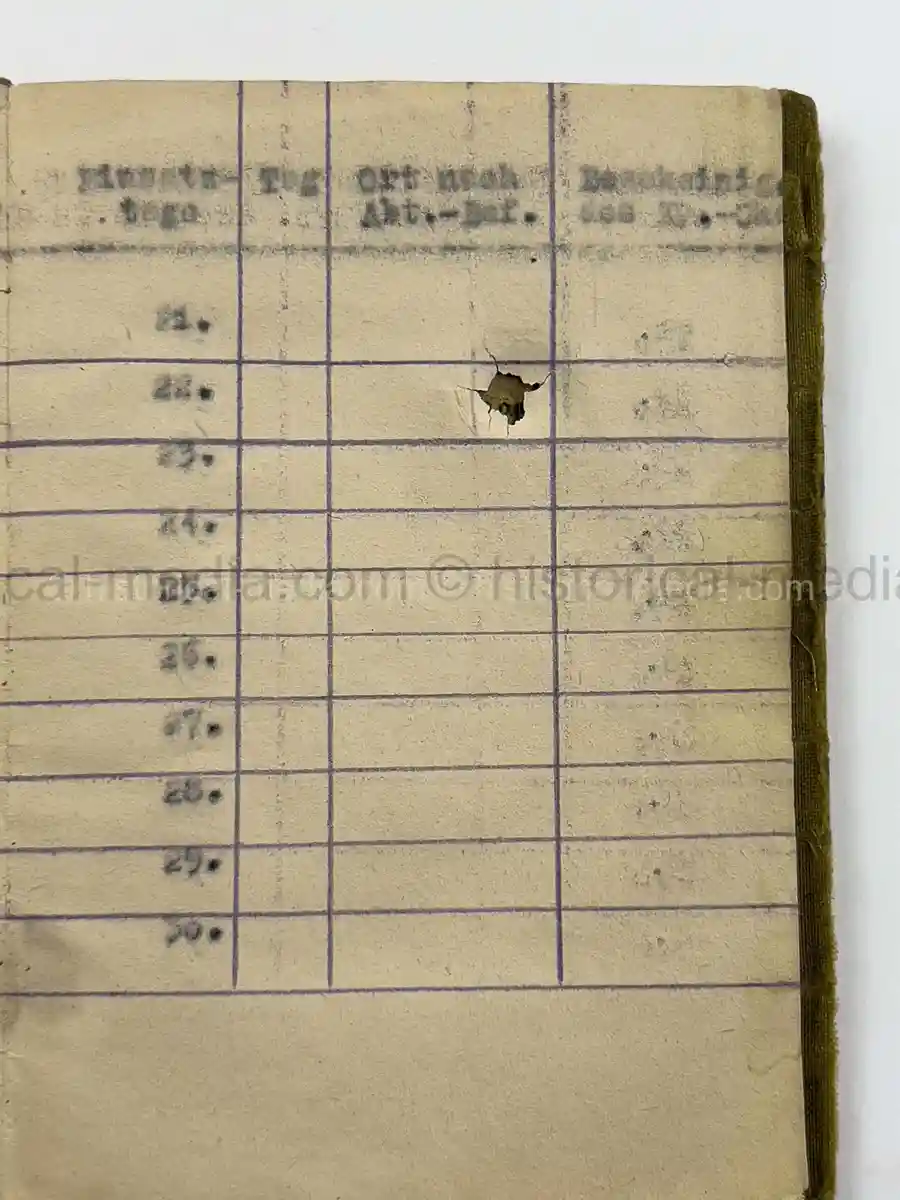 Einsatz- Tag Ort nach Bescheinig
tage Abt.-Bef. des Kp.-
21.
22.
23.
24.
25.
cal-media.com © historical-media
.com
26.
27.
28.
29.
30.